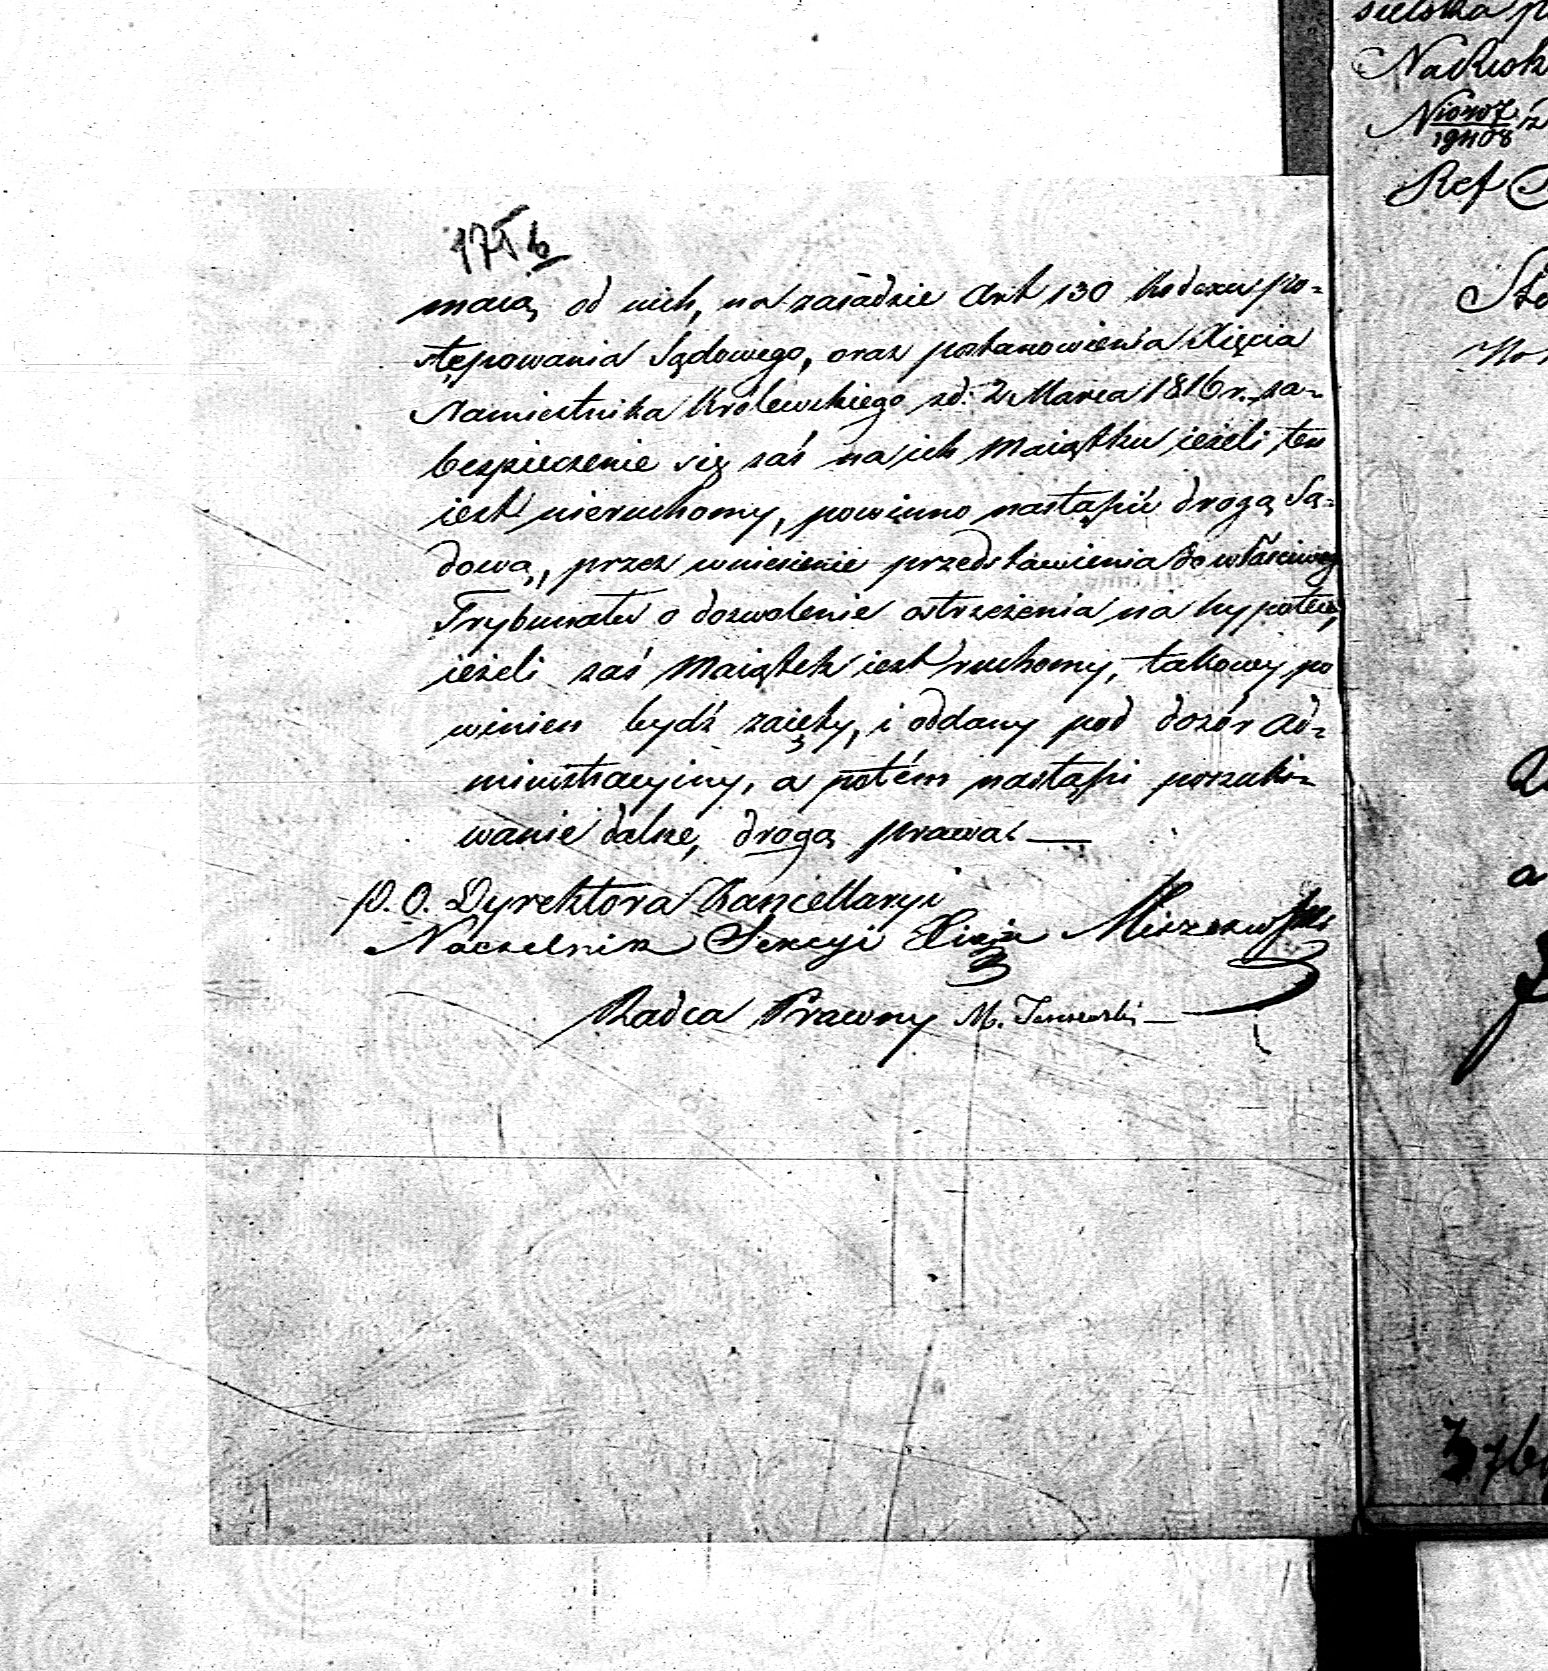 175 b
maią od nich, na zasadzie Art 130 Kodexu po=
stępowania Sądowego, oraz postanowienia Xięcia
Namiestnika Królewskiego zd: 2 Marca 1816 r. za=
bezpieczenie się zaś na ich Maiątku ieżeli ten
iest nieruchomy, powinno nastąpić drogą Są=
dową, przez wniesienie przedstawienia do właściwego
Trybunału o dozwolenie ostrzeżenia na hypotece,
ieżeli zaś Maiątek iest ruchomy, takowy po
winien bydź zaięty, i oddany pod dozór ad=
ministracyiny, a potém nastąpi poszuki=
wanie dalsze, drogą prawa.
P. O. Dyrektora Kancellaryi
Naczelnik Sekcyi
Radca Prawny M.
sielska
N 10407/19408
Ref
a